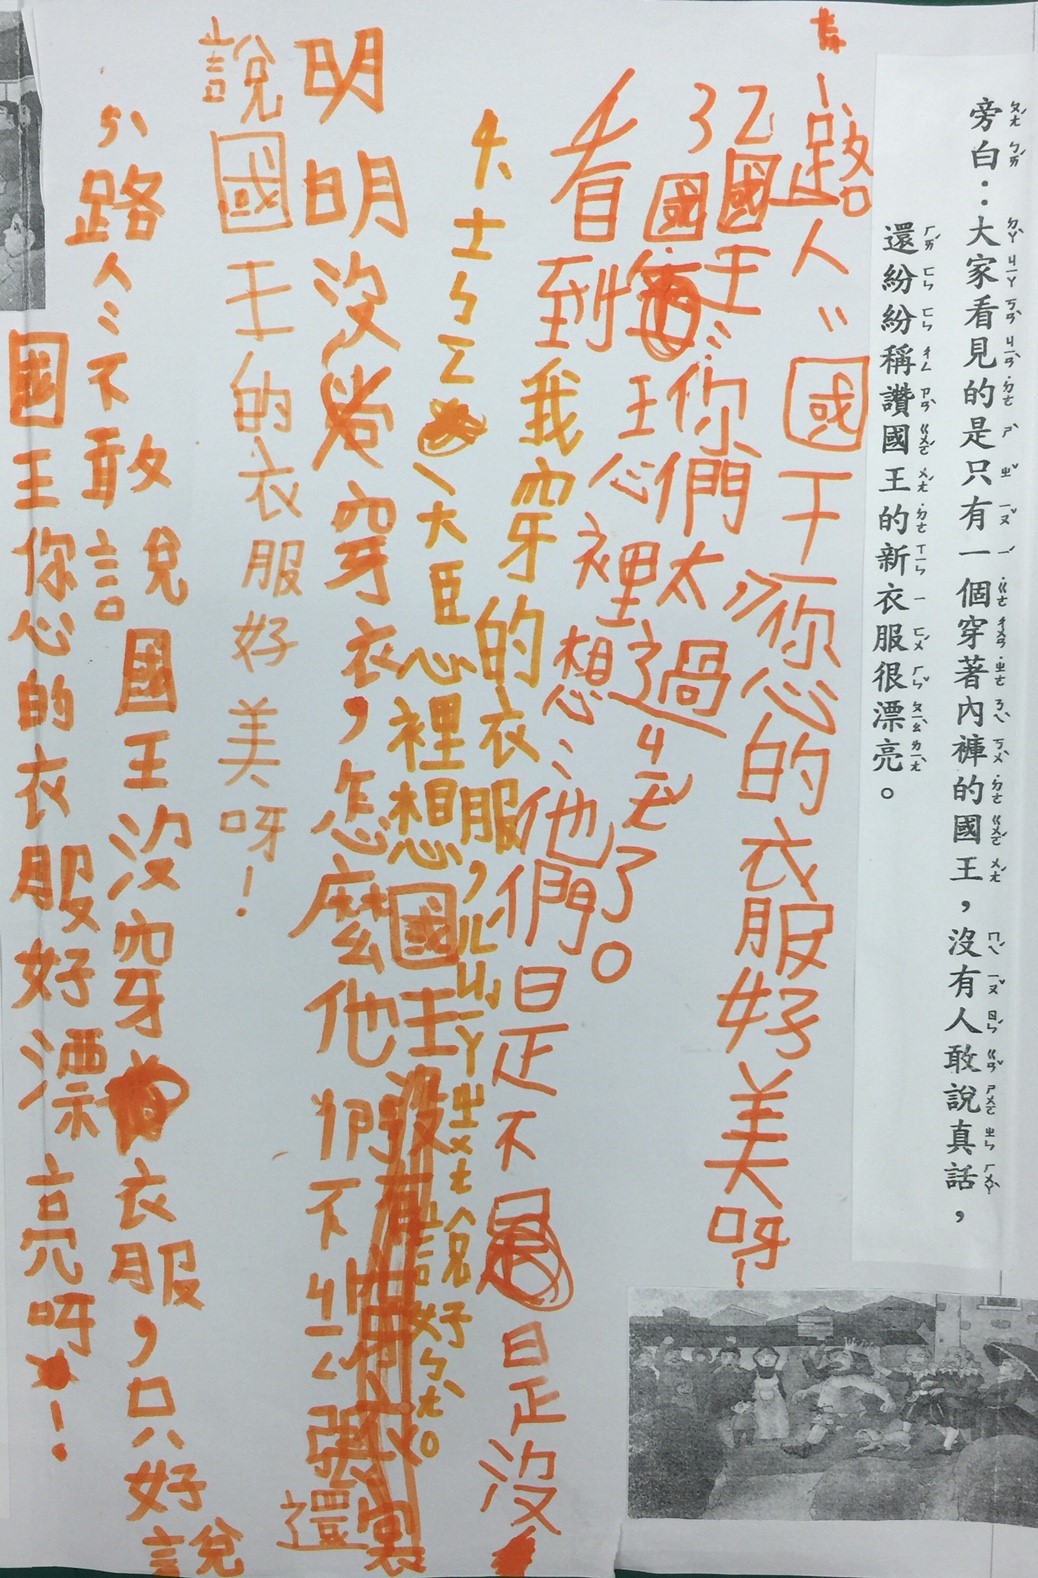 旁白：大家看見的是只有一個穿著內褲的國王，沒有人敢說真話，
還紛紛稱讚國王的新衣服很漂亮。
1、路人：國王，你心的衣服好美呀！
2國王：你們太過
了。
3國王心裡想：他們是不是沒
看到我穿的衣服，ㄦˊㄐㄧㄚˇㄓㄨㄤ說好
大臣心裡想國王
明明沒穿衣，怎麼他們不ㄐㄧㄣ張還
說國王的衣服好美呀！
5、路人：不敢說國王沒穿衣服，只好說
國王你心的衣服好漂亮呀！